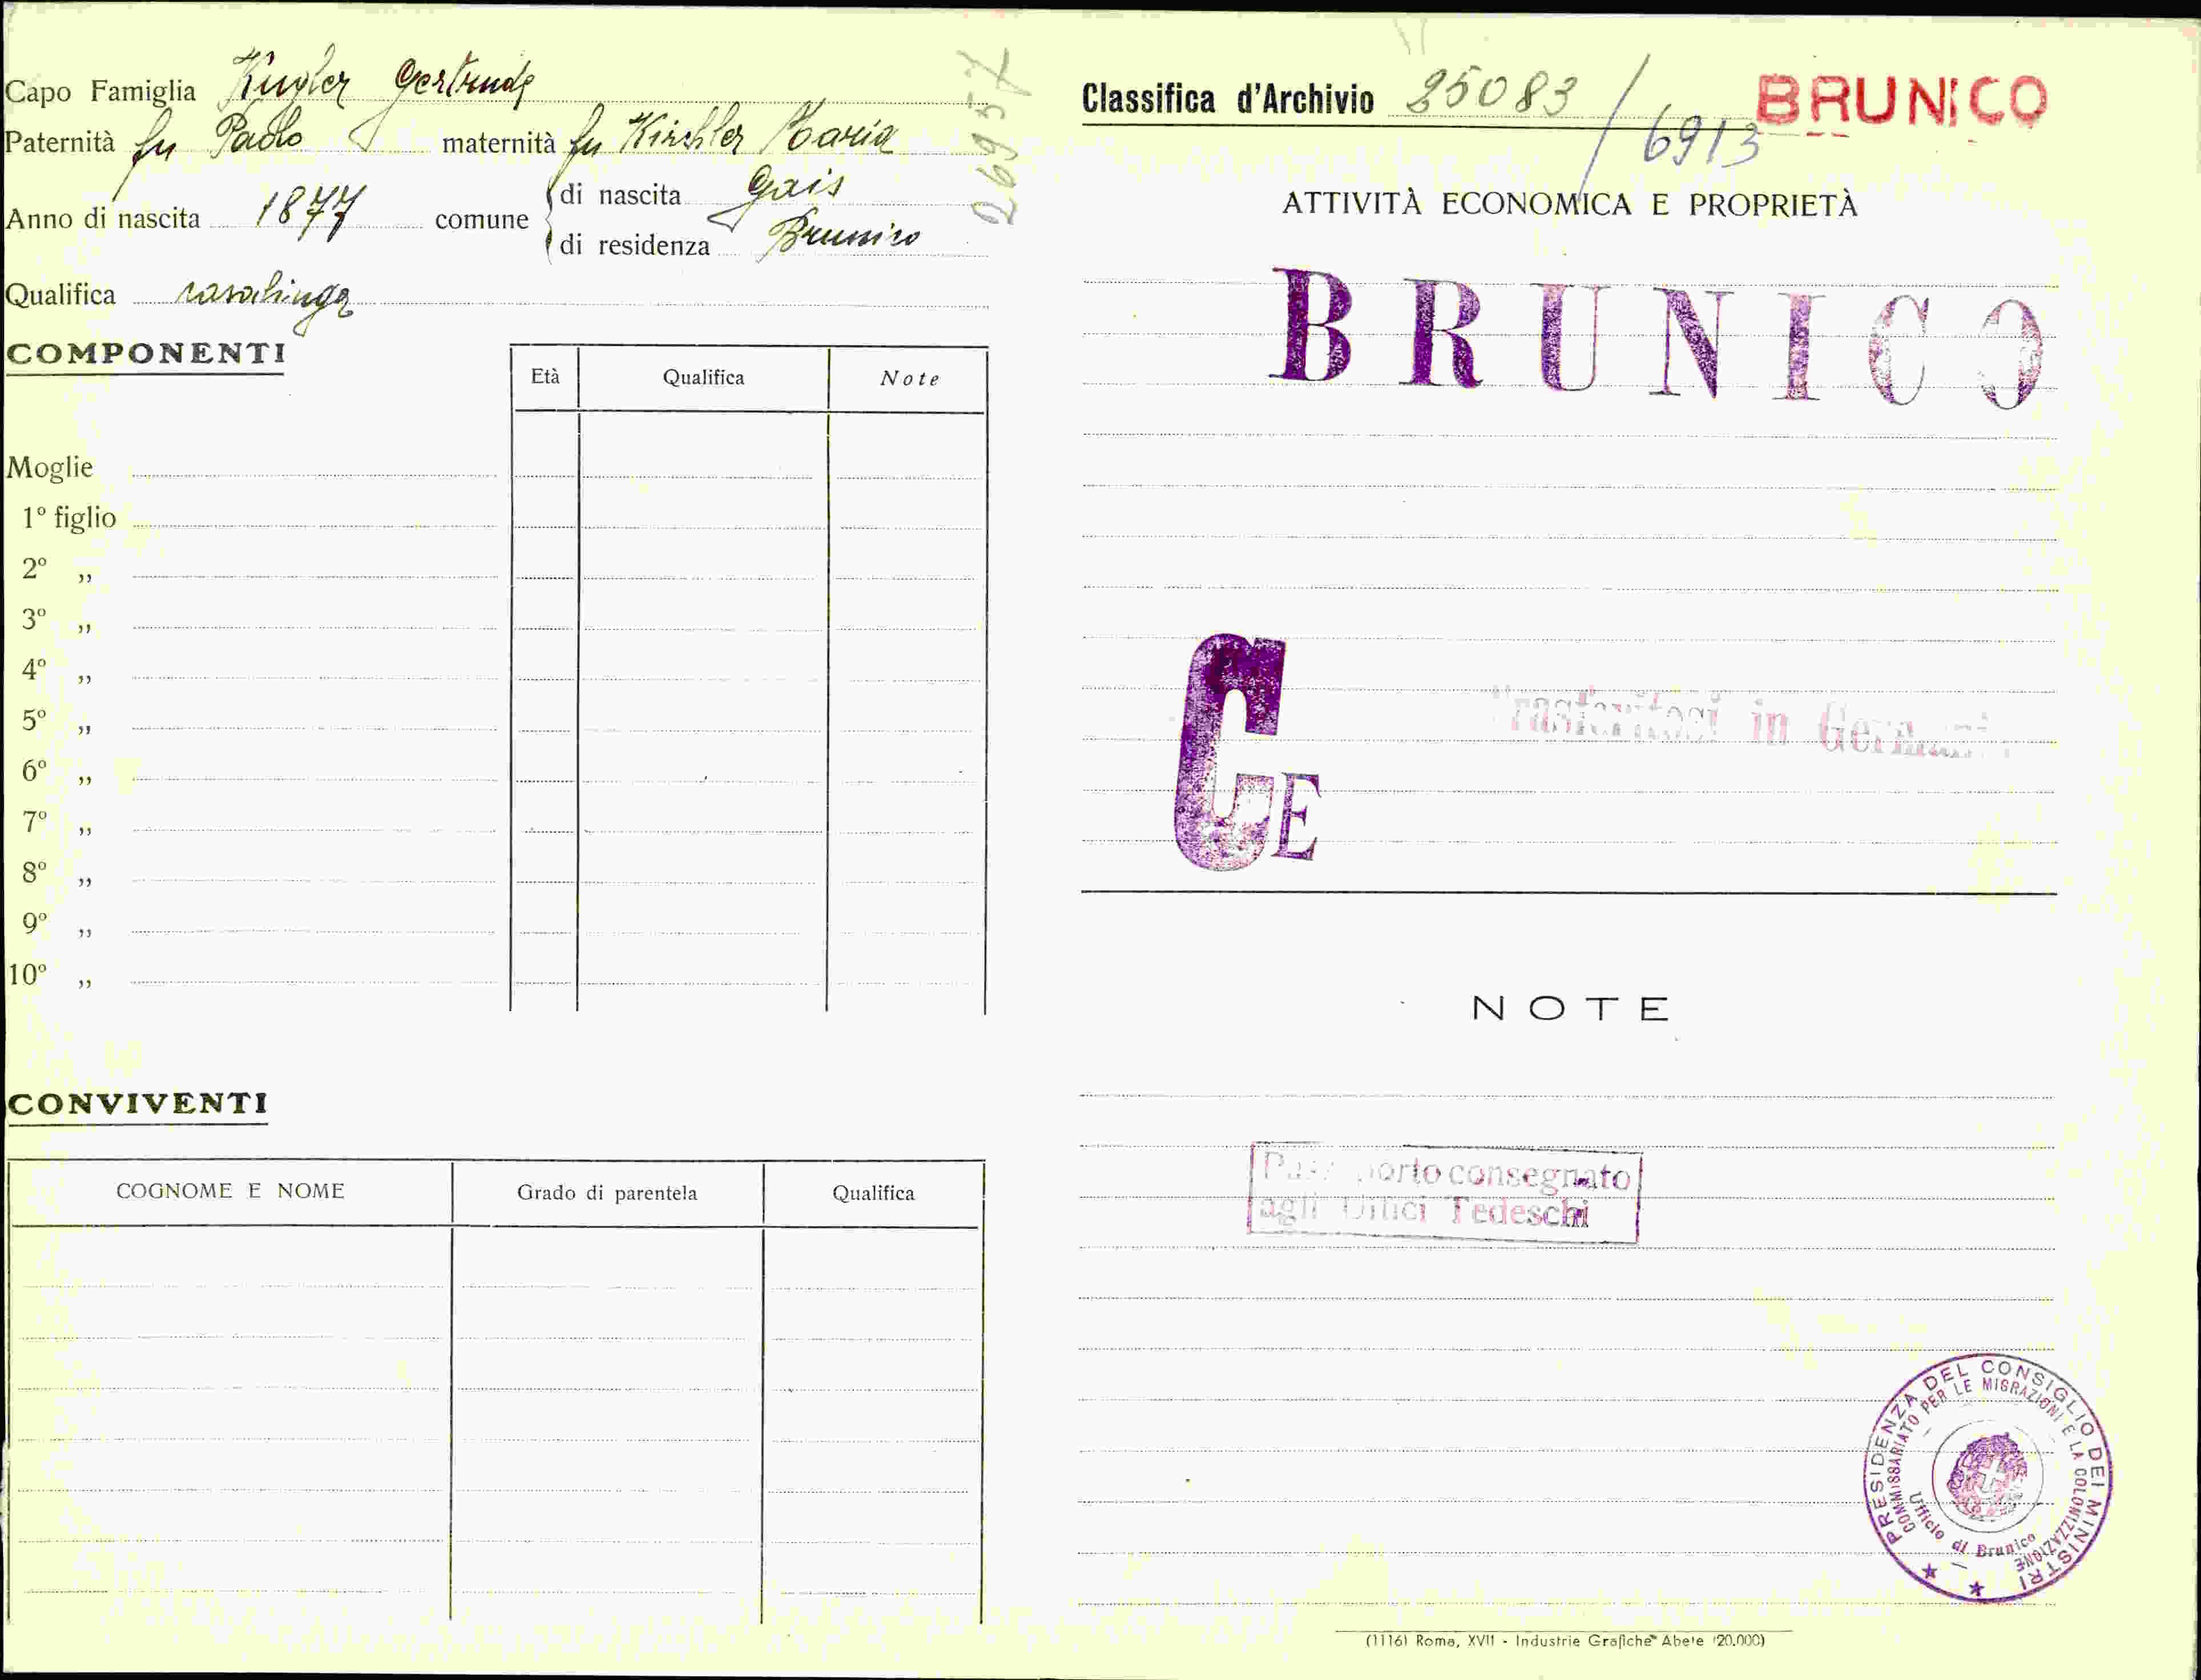 Capo Famiglia Kugler Gertrude
Paternità fu Paolo maternità fu Kirchler Maria
Anno di nascita 1877 comune di nascita Gais
di residenza Brunico
Qualifica casalinga
26957
COMPONENTI
Età Qualifica Note
Moglie
1º figlio
2º „
3º „
4º „
5º „
6º „
7º „
8º „
9º „
10º „
CONVIVENTI
COGNOME E NOME Grado di parentela Qualifica
Classifica d'Archivio 25083 / 6913 BRUNICO
ATTIVITÀ ECONOMICA E PROPRIETÀ
BRUNICO
Trasferitosi in Germania
CE
NOTE
Passaporto consegnato
agli Uffici Tedeschi
PRESIDENZA DEL CONSIGLIO DEI MINISTRI
COMMISSARIATO PER LE MIGRAZIONI E LA COLONIZZAZIONE
Ufficio di Brunico
(1116) Roma, XVII - Industrie Grafiche Abete (20.000)